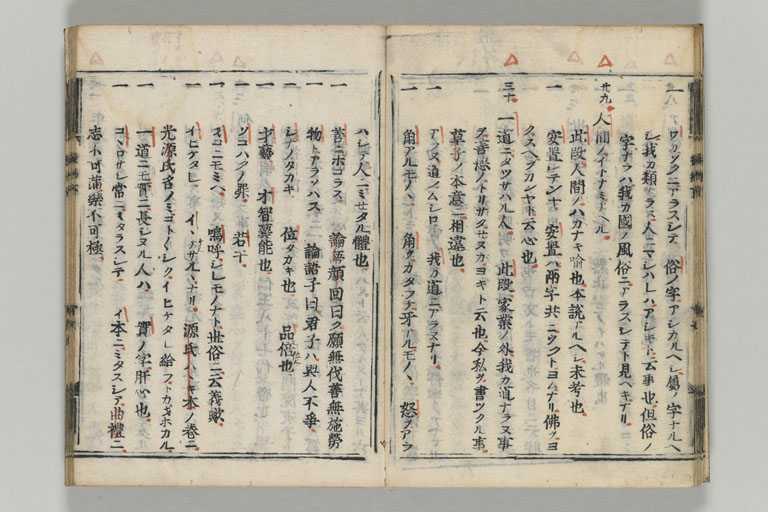 一 ワカツクニアラスシテ 俗ノ字アシカルヘシ属ノ字ナルヘ
シ我カ類ナラス人ニマシハレハアシキト云事也但俗ノ
字ナラハ我カ國ノ風俗ニアラスシテト見ヘキナリ
廿九 人間ノイトナミアヘル
此段人間ノハカナキ喩也本説アルヘシ未考也
一 安置シテンヤ 安置ハ両字共ニヲクトヨムナリ佛ヲヨ
クスヘテンヤト云心也
三十 一道ニタツサハル人 此段家業ノ外我カ道ナラヌ事
ヲ善悪ノトリサタセヌカヨキト云也今私ヲ書ツクル事
草子ノ本意ニ相違也
一 アラヌ道ノムシロ 我カ道ニアラヌナリ
一 角アルモノハ 角ヲカタフケ牙アルモノハ 怒ヲアラ
ハシテ人ニミセタル體也
一 善ニホコラス 論語顔回曰ク願無伐善無施勞
一 物トアラソハス 論語子曰君子ハ與人不爭
一 シナノタカキ 位タカキ也 品位也
一 才藝 才智藝能也
一 ソコハクノ罪 若干
一 ヲコニモミヘ 嗚呼シレモノナト世俗ニ云義歟
一 イヒケタレ イヒケサルヽナリ 源氏ハヽキ木ノ巻ニ
光源氏名ノミコト〱シクイヒケタレ給フトカオホカル
一 一道ニモ實ニ長シヌル人ハ 實ノ字肝心也
一 コヽロサシ常ニミタラスシテ イ本ニミタスシテ曲禮ニ
志不可滿樂不可極